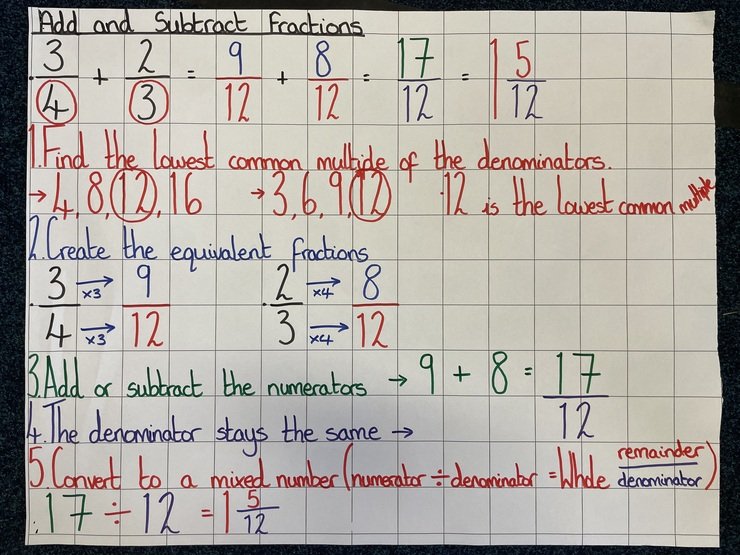 Add and Subtract Fractions
3/4 + 2/3 = 9/12 + 8/12 = 17/12 = 1 5/12
1. Find the lowest common multiple of the denominators.
→ 4, 8, 12, 16 → 3, 6, 9, 12 12 is the lowest common multiple
2. Create the equivalent fractions
3 →×3 9 2 →×4 8
4 →×3 12 3 →×4 12
3. Add or subtract the numerators → 9 + 8 = 17
4. The denominator stays the same → 12
5. Convert to a mixed number (numerator ÷ denominator = Whole remainder/denominator)
17 ÷ 12 = 1 5/12